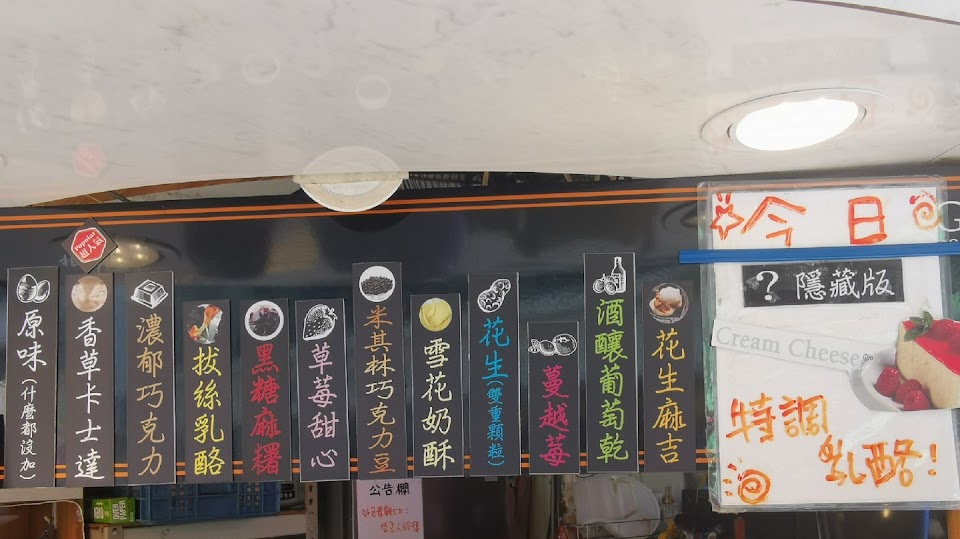 原味(什麼都沒加)
Popular
超人氣
香草卡士達
濃郁巧克力
拔絲乳酪
黑糖麻糬
草莓甜心
米其林巧克力豆
雪花奶酥
花生(雙重顆粒)
蔓越莓
酒釀葡萄乾
花生麻吉
今日
? 隱藏版
Cream Cheese
特調
乳酪!
公告欄